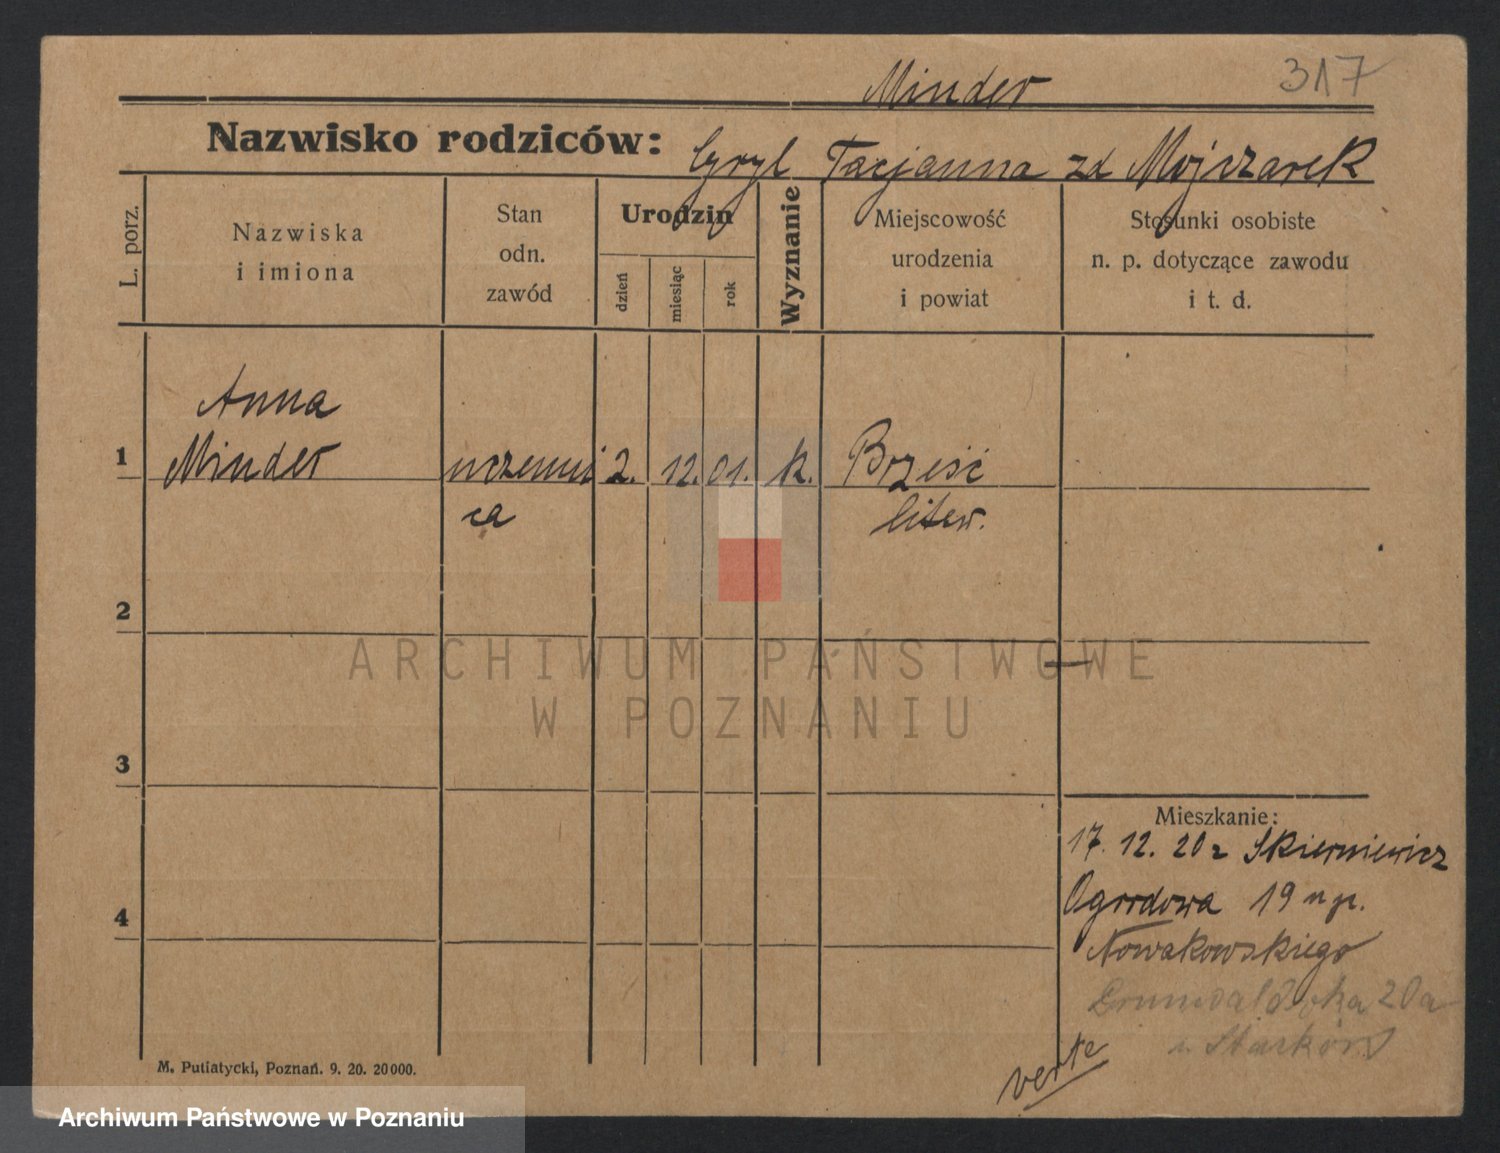 317
Minder
Nazwisko rodziców: Cyryl Tacjanna zd Mojszarek
L. porz.
Nazwiska
i imiona
Stan
odn.
zawód
Urodzin
dzień
miesiąc
rok
Wyznanie
Miejscowość
urodzenia
i powiat
Stosunki osobiste
n. p. dotyczące zawodu
i t. d.
Anna
1 Minder uczenni 2. 12. 01. k. Brześć
ca litew.
2
3
4
Mieszkanie:
17. 12. 20 z Skierniewicz
Ogrodowa 19 u p.
Nowakowskiego
Grunwaldzka 20a
u
verte
M. Putiatycki, Poznań. 9. 20. 20000.
ARCHIWUM PAŃSTWOWE
W POZNANIU
Archiwum Państwowe w Poznaniu